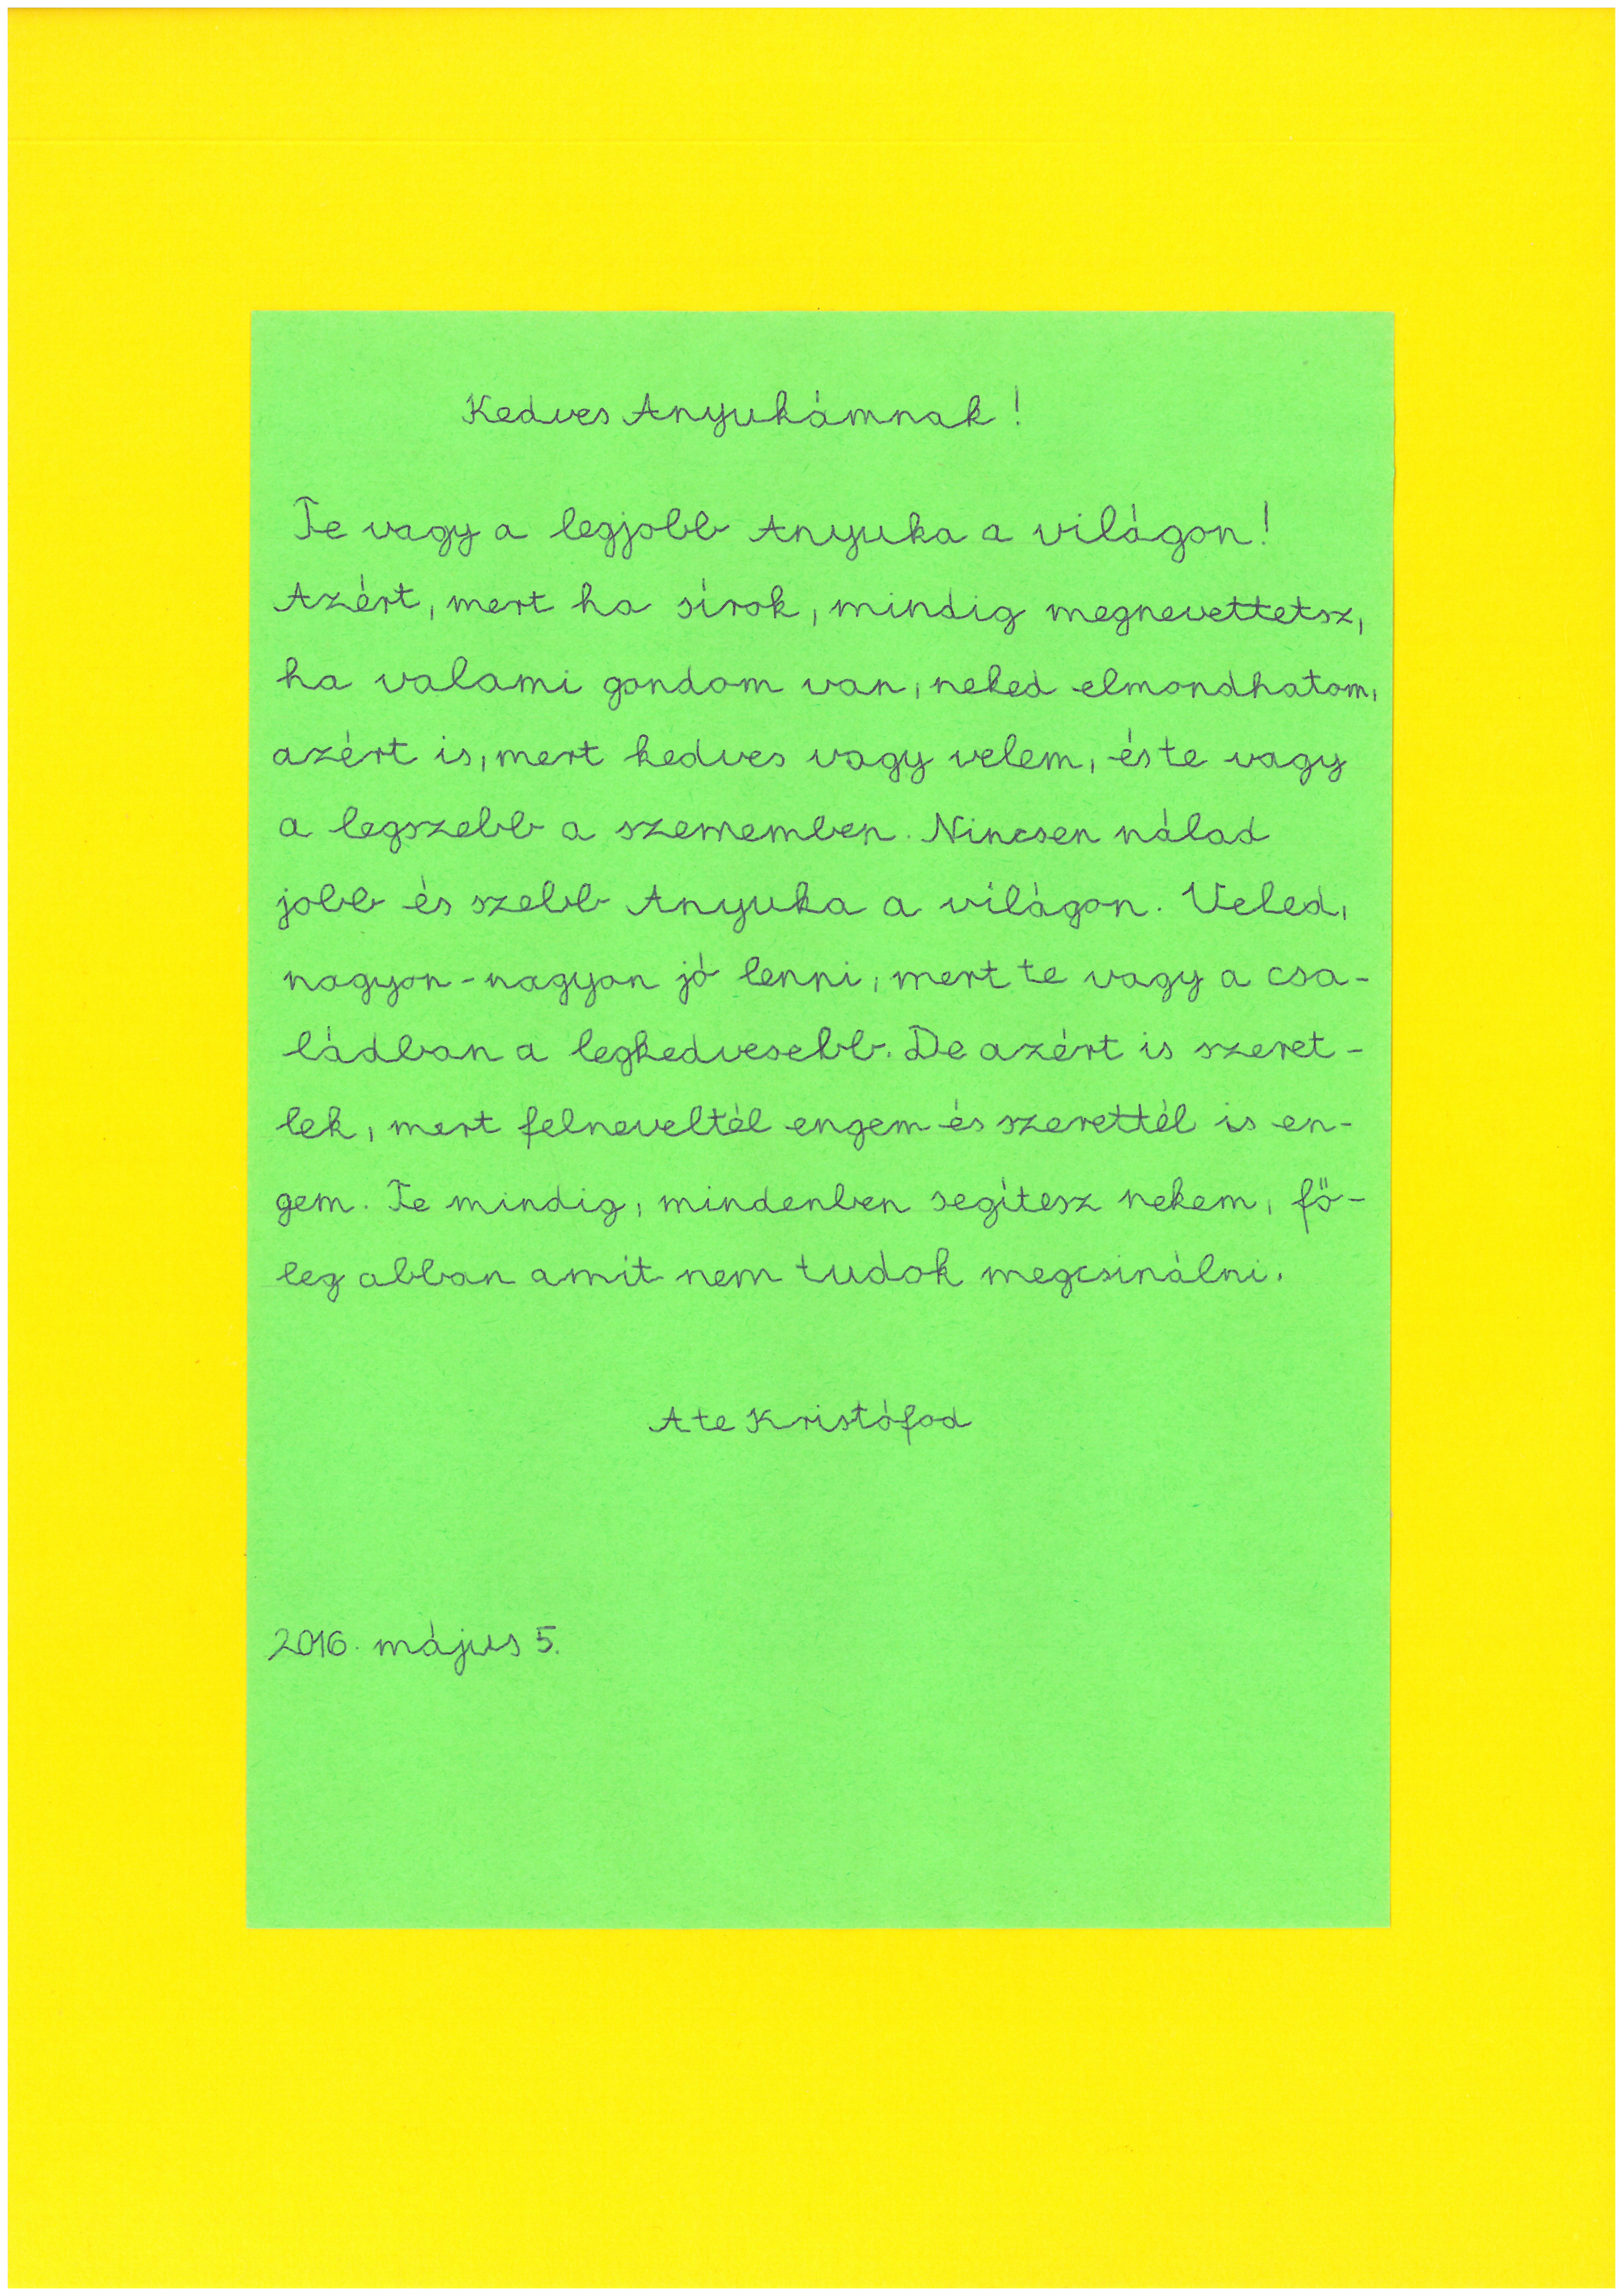 Kedves Anyukámnak!
Te vagy a legjobb Anyuka a világon!
Azért, mert ha sírok, mindig megnevettetsz,
ha valami gondom van, neked elmondhatom,
azért is, mert kedves vagy velem, és te vagy
a legszebb a szememben. Nincsen nálad
jobb és szebb Anyuka a világon. Veled,
nagyon-nagyon jó lenni, mert te vagy a csa-
ládban a legkedvesebb. De azért is szeret-
lek, mert felneveltél engem és szerettél is en-
gem. Te mindig, mindenben segítesz nekem, fő-
leg abban amit nem tudok megcsinálni.
A te Kristófod
2016. május 5.